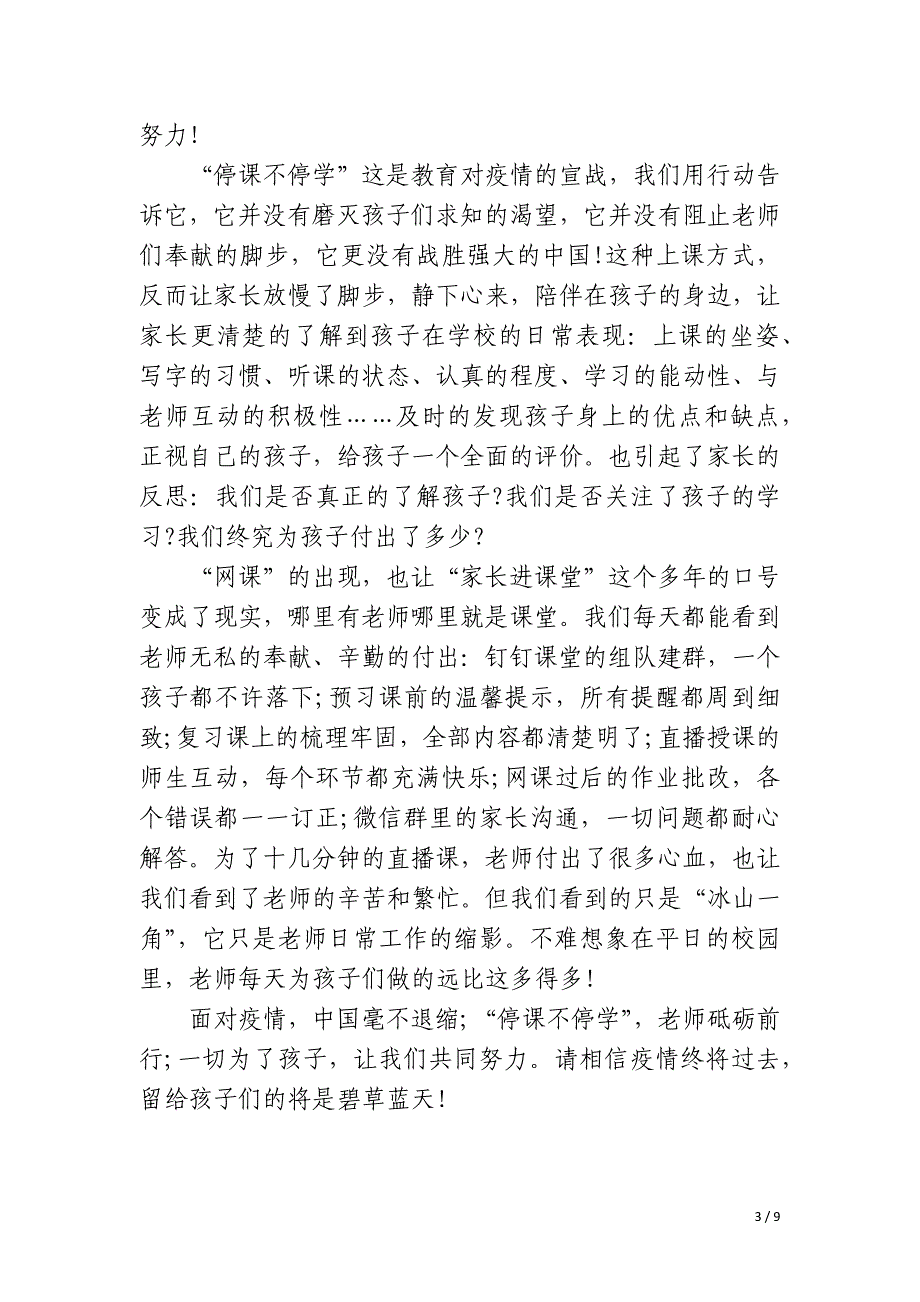 努力！
“停课不停学”这是教育对疫情的宣战，我们用行动告
诉它，它并没有磨灭孩子们求知的渴望，它并没有阻止老师
们奉献的脚步，它更没有战胜强大的中国!这种上课方式，
反而让家长放慢了脚步，静下心来，陪伴在孩子的身边，让
家长更清楚的了解到孩子在学校的日常表现：上课的坐姿、
写字的习惯、听课的状态、认真的程度、学习的能动性、与
老师互动的积极性……及时的发现孩子身上的优点和缺点，
正视自己的孩子，给孩子一个全面的评价。也引起了家长的
反思：我们是否真正的了解孩子?我们是否关注了孩子的学
习?我们终究为孩子付出了多少?
“网课”的出现，也让“家长进课堂”这个多年的口号
变成了现实，哪里有老师哪里就是课堂。我们每天都能看到
老师无私的奉献、辛勤的付出：钉钉课堂的组队建群，一个
孩子都不许落下;预习课前的温馨提示，所有提醒都周到细
致;复习课上的梳理牢固，全部内容都清楚明了;直播授课的
师生互动，每个环节都充满快乐;网课过后的作业批改，各
个错误都一一订正;微信群里的家长沟通，一切问题都耐心
解答。为了十几分钟的直播课，老师付出了很多心血，也让
我们看到了老师的辛苦和繁忙。但我们看到的只是“冰山一
角”，它只是老师日常工作的缩影。不难想象在平日的校园
里，老师每天为孩子们做的远比这多得多！
面对疫情，中国毫不退缩;“停课不停学”，老师砥砺前
行;一切为了孩子，让我们共同努力。请相信疫情终将过去，
留给孩子们的将是碧草蓝天！
3 / 9